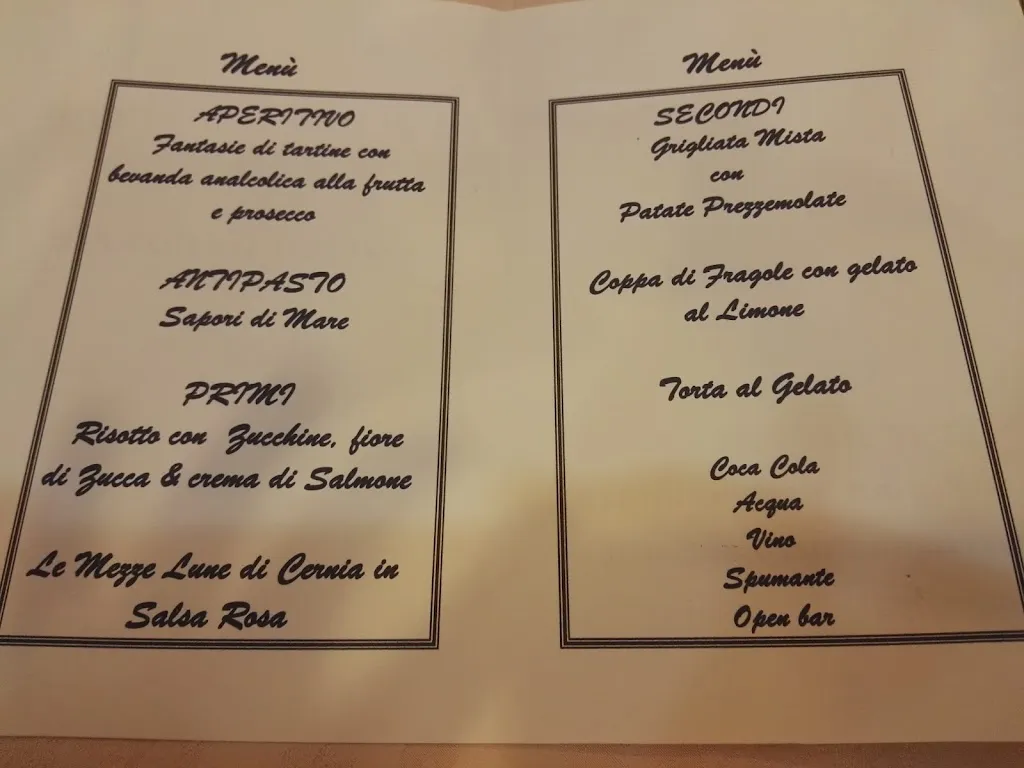 Menù
APERITIVO
Fantasie di tartine con
bevanda analcolica alla frutta
e prosecco
ANTIPASTO
Sapori di Mare
PRIMI
Risotto con Zucchine, fiore
di Zucca & crema di Salmone
Le Mezze Lune di Cernia in
Salsa Rosa
Menù
SECONDI
Grigliata Mista
con
Patate Prezzemolate
Coppa di Fragole con gelato
al Limone
Torta al Gelato
Coca Cola
Acqua
Vino
Spumante
Open bar